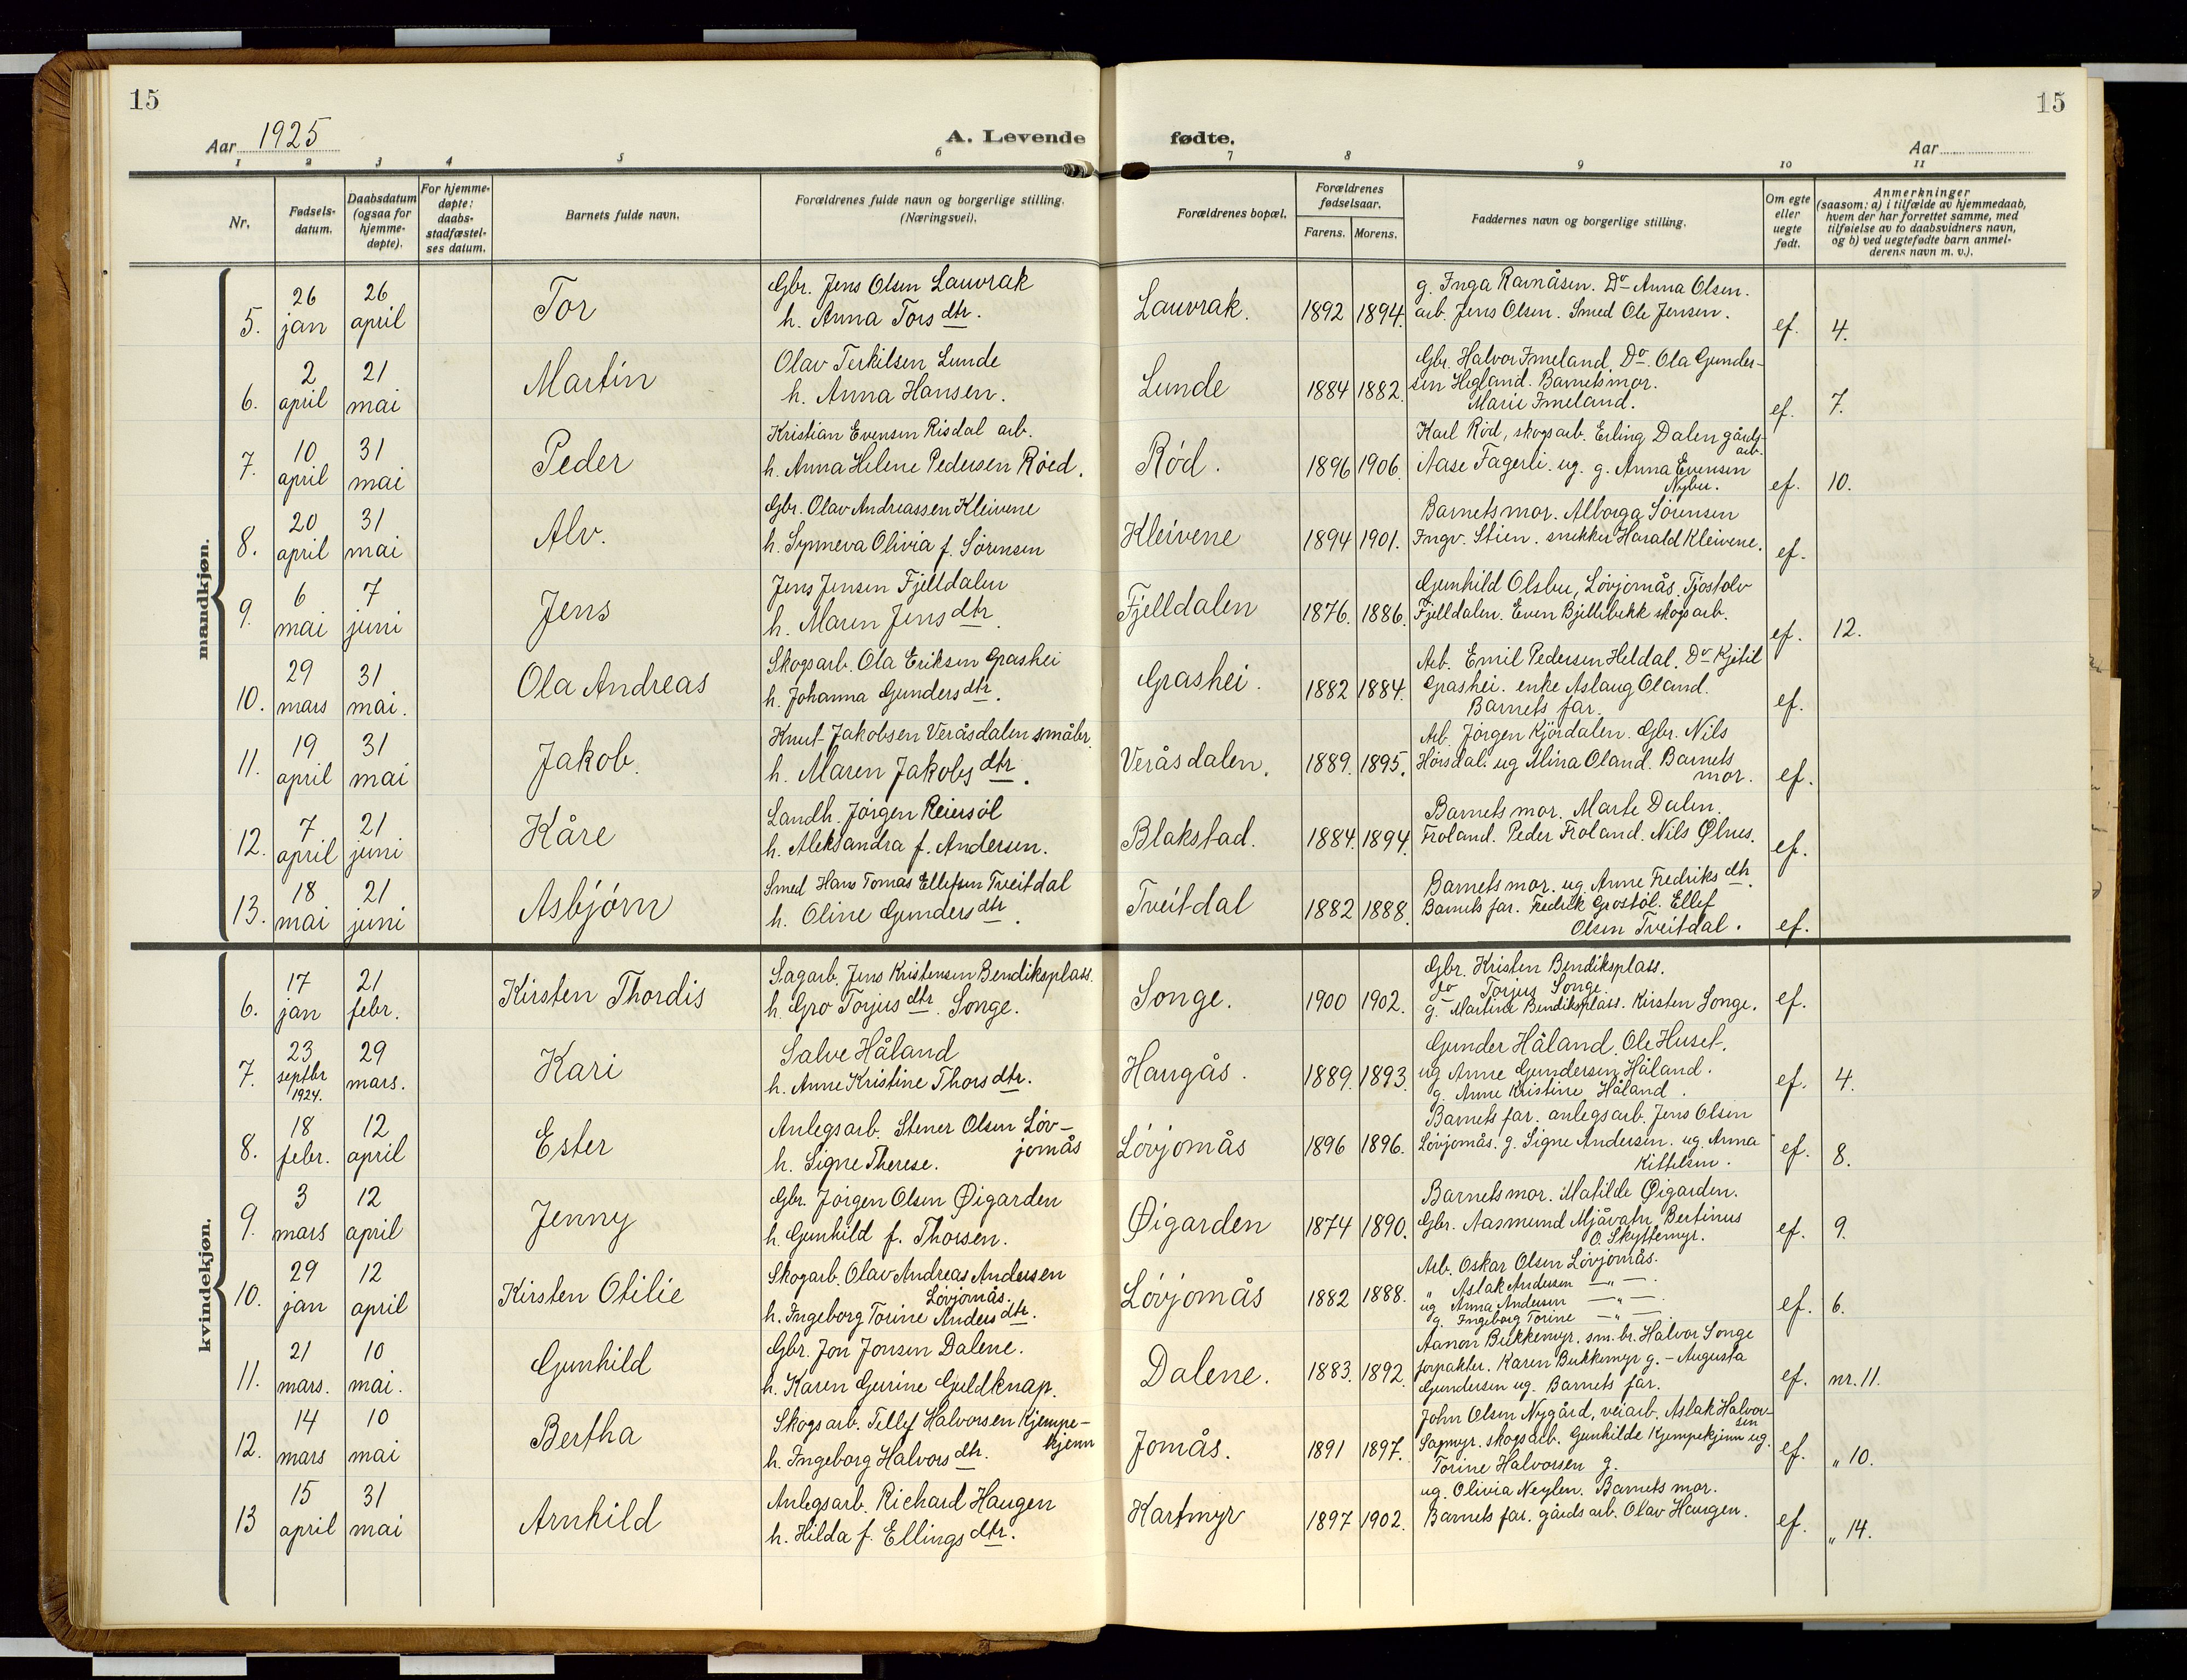 15
15
Aar 1925
A. Levende fødte.
Aar
1 2 3 4 5 6 7 8 9 10 11
Nr.
Fødsels-
datum.
Daabsdatum
(ogsaa for
hjemme-
døpte).
For hjemme-
døpte:
daabs-
stadfæstel-
ses datum.
Barnets fulde navn.
Forældrenes fulde navn og borgerlige stilling.
(Næringsvei).
Forældrenes bopæl.
Forældrenes
fødselsaar.
Farens. Morens.
Faddernes navn og borgerlige stilling.
Om egte
eller
uegte
født.
Anmerkninger
(saasom: a) i tilfælde av hjemmedaab,
hvem der har forrettet samme, med
tilføielse av to daabsvidners navn,
og b) ved uegtefødte barn anmel-
derens navn m. v.).
mandkjøn.
5.
26
jan
26
april
Tor
Gbr. Jens Olsen Lauvrak
h. Anna Tors dtr.
Lauvrak.
1892 1894.
g. Inga Ramåsen. Do Anna Olsen.
arb. Jens Olsen. Smed Ole Jensen.
ef. 4.
6.
2
april
21
mai
Martin
Olav Terkilsen Lunde
h. Anna Hansen.
Lunde
1884 1882.
Gbr. Halvor Imeland. Do Ola Gunder-
sen Hegland. Barnets mor.
Marie Imeland.
ef. 7.
7.
10
april
31
mai
Peder
Kristian Evensen Risdal arb.
h. Anna Helene Pedersen Röed.
Röd.
1896 1906
Karl Röd, skogsarb. Erling Dalen gårds-
arb.
Aase Fagerli. ug. g. Anna Evensen
Nybu.
ef. 10.
8.
20
april
31
mai
Alv.
Gbr. Olav Andreassen Kleivene
h. Synneva Olivia f. Sörensen
Kleivene
1894 1901.
Barnets mor. Alborga Sörensen
Ingv. Stien. snekker Harald Kleivene.
ef.
9.
6
mai
7
juni
Jens
Jens Jensen Fjelldalen
h. Maren Jens dtr.
Fjelldalen
1876. 1886.
Gunhild Olsbu, Lövjomås. Tjostolv
Fjelldalen. Even Bjellibekk skogsarb.
ef. 12.
10.
29
mars
31
mai.
Ola Andreas
Skogsarb. Ola Eriksen Grashei
h. Johanna Gunders dtr.
Grashei.
1882 1884.
Arb. Emil Pedersen Heldal. Do Kjetil
Grashei. enke Aslaug Oland.
Barnets far.
ef.
11.
19
april
31
mai
Jakob.
Knut Jakobsen Veråsdalen småbr.
h. Maren Jakobs dtr.
Veråsdalen.
1889. 1895.
Arb. Jörgen Kjördalen. Gbr. Nils
Hörsdal. ug Alina Oland. Barnets
mor.
ef.
12.
7
april
21
juni
Kåre
Landh. Jörgen Reiersöl
h. Aleksandra f. Andersen.
Blakstad.
1884. 1894.
Barnets mor. Marte Dalen.
Froland. Peder Froland. Nils Ølnes.
ef.
13.
18
mai
21
juni
Asbjörn
Smed Hans Tomas Ellefsen Tveitdal
h. Oline Gunders dtr.
Tveitdal
1882 1888.
Barnets mor. ug. Anne Fredriks dtr.
Barnets far. Fredrik Grostöl. Ellef
Olsen Tveitdal.
ef.
kvindekjøn.
6.
17
jan
21
febr.
Kirsten Thordis
Sagarb. Jens Kristensen Bendiksplass.
h. Gro Torjus dtr. Songe.
Songe.
1900 1902.
Gbr. Kristen Bendiksplass.
Do Torjus Songe.
g. Martine Bendiksplass. Kirsten Songe.
ef.
7.
23
septbr
1924.
29
mars.
Kari
Salve Håland
h. Anne Kristine Thors dtr.
Haugås.
1889. 1893.
Gunder Håland. Ole Huset.
ug Anne Gundersen Håland.
g. Anne Kristine Håland.
ef. 4.
8.
18
febr.
12
april
Ester
Anlegsarb. Stener Olsen Löv-
jomås
h. Signe Therese.
Lövjomås
1896 1896.
Barnets far. anlegsarb. Jens Olsen
Lövjomås. g. Signe Andersen. ug. Anna
Kittelsen.
ef. 8.
9.
3
mars
12
april
Jenny
Gbr. Jörgen Olsen Øigarden
h. Gunhild f. Thorsen.
Øigarden
1874 1890.
Barnets mor. Matilde Øigarden.
Gbr. Aasmund Mjåvatn. Bertinus
O. Skyttemyr.
ef. 9.
10.
29
jan
12
april
Kirsten Otilie
Skogarb. Olav Andreas Andersen
Lövjomås.
h. Ingeborg Torine Anders dtr.
Lövjomås
1882 1888.
Arb. Oskar Olsen Lövjomås.
" Aslak Andersen — " —.
ug Anna Andersen — " —.
g. Ingeborg Torine — " —.
ef. 6.
11.
21
mars.
10
mai.
Gunhild
Gbr. Jon Jonsen Dalene.
h. Karen Gurine Guldknap.
Dalene.
1883. 1892.
Aanon Bukkemyr. sm. br. Halvor Songe
forpakter. Karen Bukkemyr g. – Augusta
Gundersen ug. Barnets far.
ef. nr. 11.
12.
14
mars
10
mai
Bertha
Skogsarb. Tellef Halvorsen Kjempe-
kjenn
h. Ingeborg Halvors dtr.
Jomås.
1891 1897.
John Olsen Nygård, veiarb. Aslak Halvor-
sen
Sagmyr. skogsarb. Gunhilde Kjempekjenn ug.
Torine Halvorsen g.
ef. " 10.
13
15
april
31
mai
Arnhild
Anlegsarb. Richard Haugen
h. Hilda f. Ellings dtr.
Hartmyr
1897 1902.
ug. Olivia Neylen. Barnets mor.
Barnets far. gårdsarb. Olav Haugen.
ef. " 14.